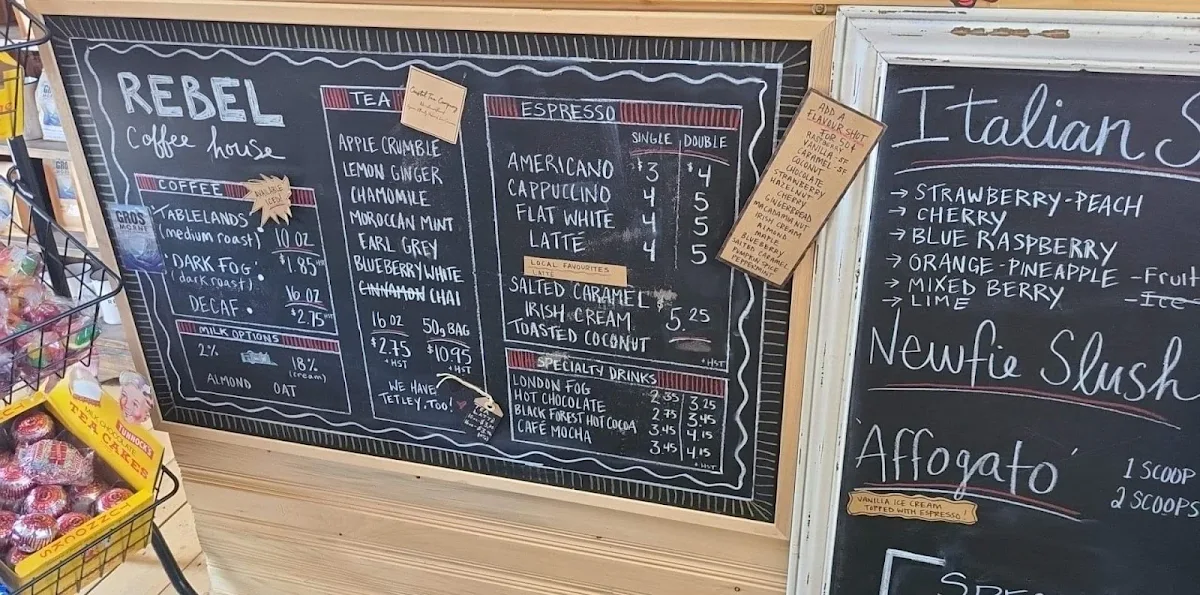 REBEL
Coffee house
COFFEE
AVAILABLE ICED!
TABLELANDS
(medium roast)
10 OZ
$1.85 HST
'DARK FOG'
(dark roast)
DECAF
16 OZ
$2.75 HST
MILK OPTIONS
2%
18%
(cream)
ALMOND OAT
GROS
MORNE
TEA
APPLE CRUMBLE
LEMON GINGER
CHAMOMILE
MOROCCAN MINT
EARL GREY
BLUEBERRY WHITE
CINNAMON CHAI
16 OZ 50g BAG
$2.75 $10.95
+HST +HST
WE HAVE
TETLEY, TOO!
ESPRESSO
SINGLE DOUBLE
AMERICANO $3 $4
CAPPUCCINO 4 5
FLAT WHITE 4 5
LATTE 4 5
LOCAL FAVOURITES
LATTE
SALTED CARAMEL
IRISH CREAM $5.25
TOASTED COCONUT
+HST
SPECIALTY DRINKS
LONDON FOG 2.35 3.25
HOT CHOCOLATE 2.75 3.45
BLACK FOREST HOT COCOA 3.45 4.15
CAFÉ MOCHA 3.45 4.15
+HST
ADD A
FLAVOUR SHOT
FOR 50¢
RASPBERRY
VANILLA -SF
CARAMEL -SF
COCONUT
CHOCOLATE
STRAWBERRY
HAZELNUT
CHERRY
GINGERBREAD
MACADAMIA NUT
IRISH CREAM
ALMOND
MAPLE
BLUEBERRY
SALTED CARAMEL
PUMPKIN SPICE
PEPPERMINT
Italian S
→ STRAWBERRY-PEACH
→ CHERRY
→ BLUE RASPBERRY
→ ORANGE-PINEAPPLE - Fruit
→ MIXED BERRY - Ice
→ LIME
Newfie Slush
'Affogato'
1 SCOOP
2 SCOOPS
VANILLA ICE CREAM
TOPPED WITH ESPRESSO!
SPE
MILK CHOCOLATE
TUNNOCK'S
TEA CAKES
TUNNOCK'S